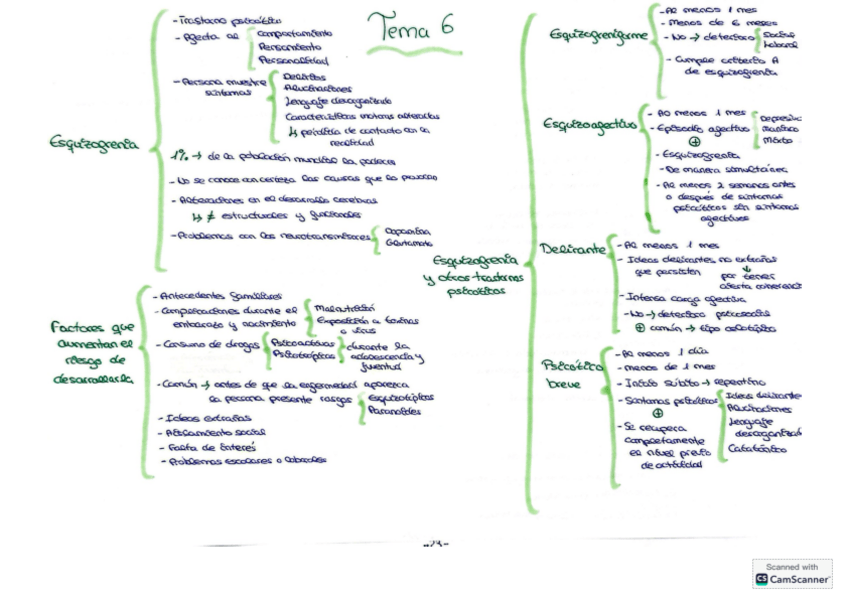 Tema 6
Esquizofrenia
- Trastorno psicótico
- Afecta al
Comportamiento
Pensamiento
Personalidad
- Persona muestra síntomas
Delirios
Alucinaciones
Lenguaje desorganizado
Características motoras alteradas
↳ pérdida de contacto con la
realidad
1% → de la población mundial la padece
- No se conoce con certeza las causas que la provocan
- Alteraciones en el desarrollo cerebral
↳ ≠ estructurales y funcionales
- Problemas con los neurotransmisores
Dopamina
Glutamato
Factores que
aumentan el
riesgo de
desarrollarla
- Antecedentes familiares
- Complicaciones durante el
embarazo y nacimiento
Malnutrición
Exposición a toxinas
o virus
- Consumo de drogas
Psicoactivas
Psicotrópicas
durante la
adolescencia y
juventud
- Común → antes de que la enfermedad aparezca
la persona presente rasgos
Esquizotípicos
Paranoides
- Ideas extrañas
- Aislamiento social
- Falta de interés
- Problemas escolares o laborales
Esquizofrenia
y otros trastornos
psicóticos
Esquizofreniforme
- Al menos 1 mes
- Menos de 6 meses
- No → deterioro
Social
Laboral
- Cumple criterio A
de esquizofrenia
Esquizoafectivo
- Al menos 1 mes
- Episodio afectivo
Depresivo
Maníaco
Mixto
⊕
- Esquizofrenia
- De manera simultánea
- Al menos 2 semanas antes
o después de síntomas
psicóticos sin síntomas
afectivos
Delirante
- Al menos 1 mes
- Ideas delirantes no extrañas
que persisten
por tener
cierta coherencia
- Intensa carga afectiva
- No → deterioro psicosocial
⊕ común → tipo celotípico
Psicótico
breve
- Al menos 1 día
- menos de 1 mes
- Inicio súbito → repentino
- Síntomas psicóticos
Ideas delirante
Alucinaciones
Lenguaje
desorganizad
Catatónico
⊕
- Se recupera
completamente
el nivel previo
de actividad
-23-
Scanned with
CS CamScanner